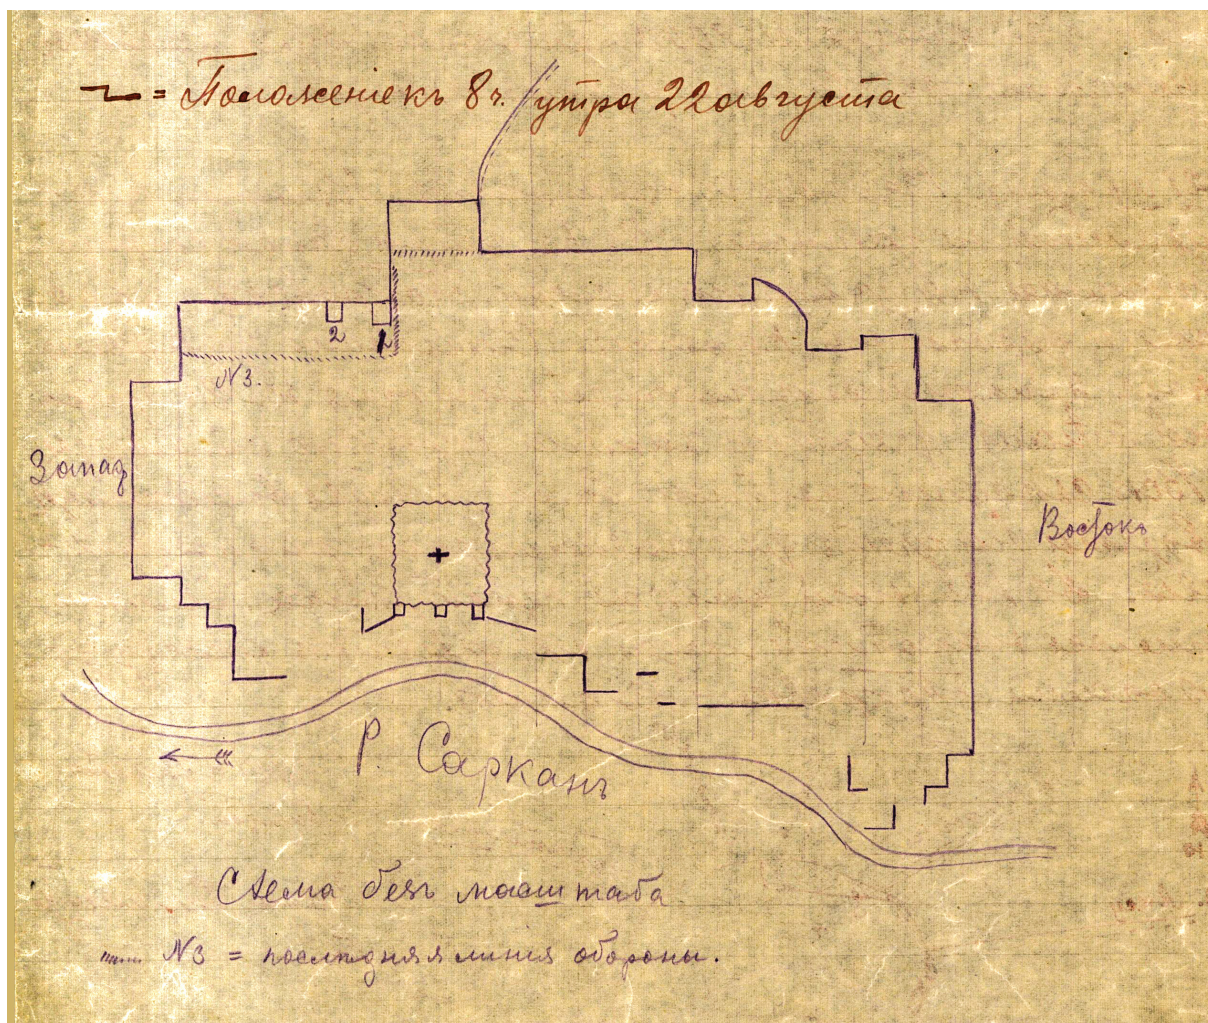 = Положеніе къ 8 ч. утра 22 августа
2
1
N 3.
Западъ
Востокъ
Р. Сарканъ
Схема безъ масштаба
N 3 = послѣдняя линія обороны.